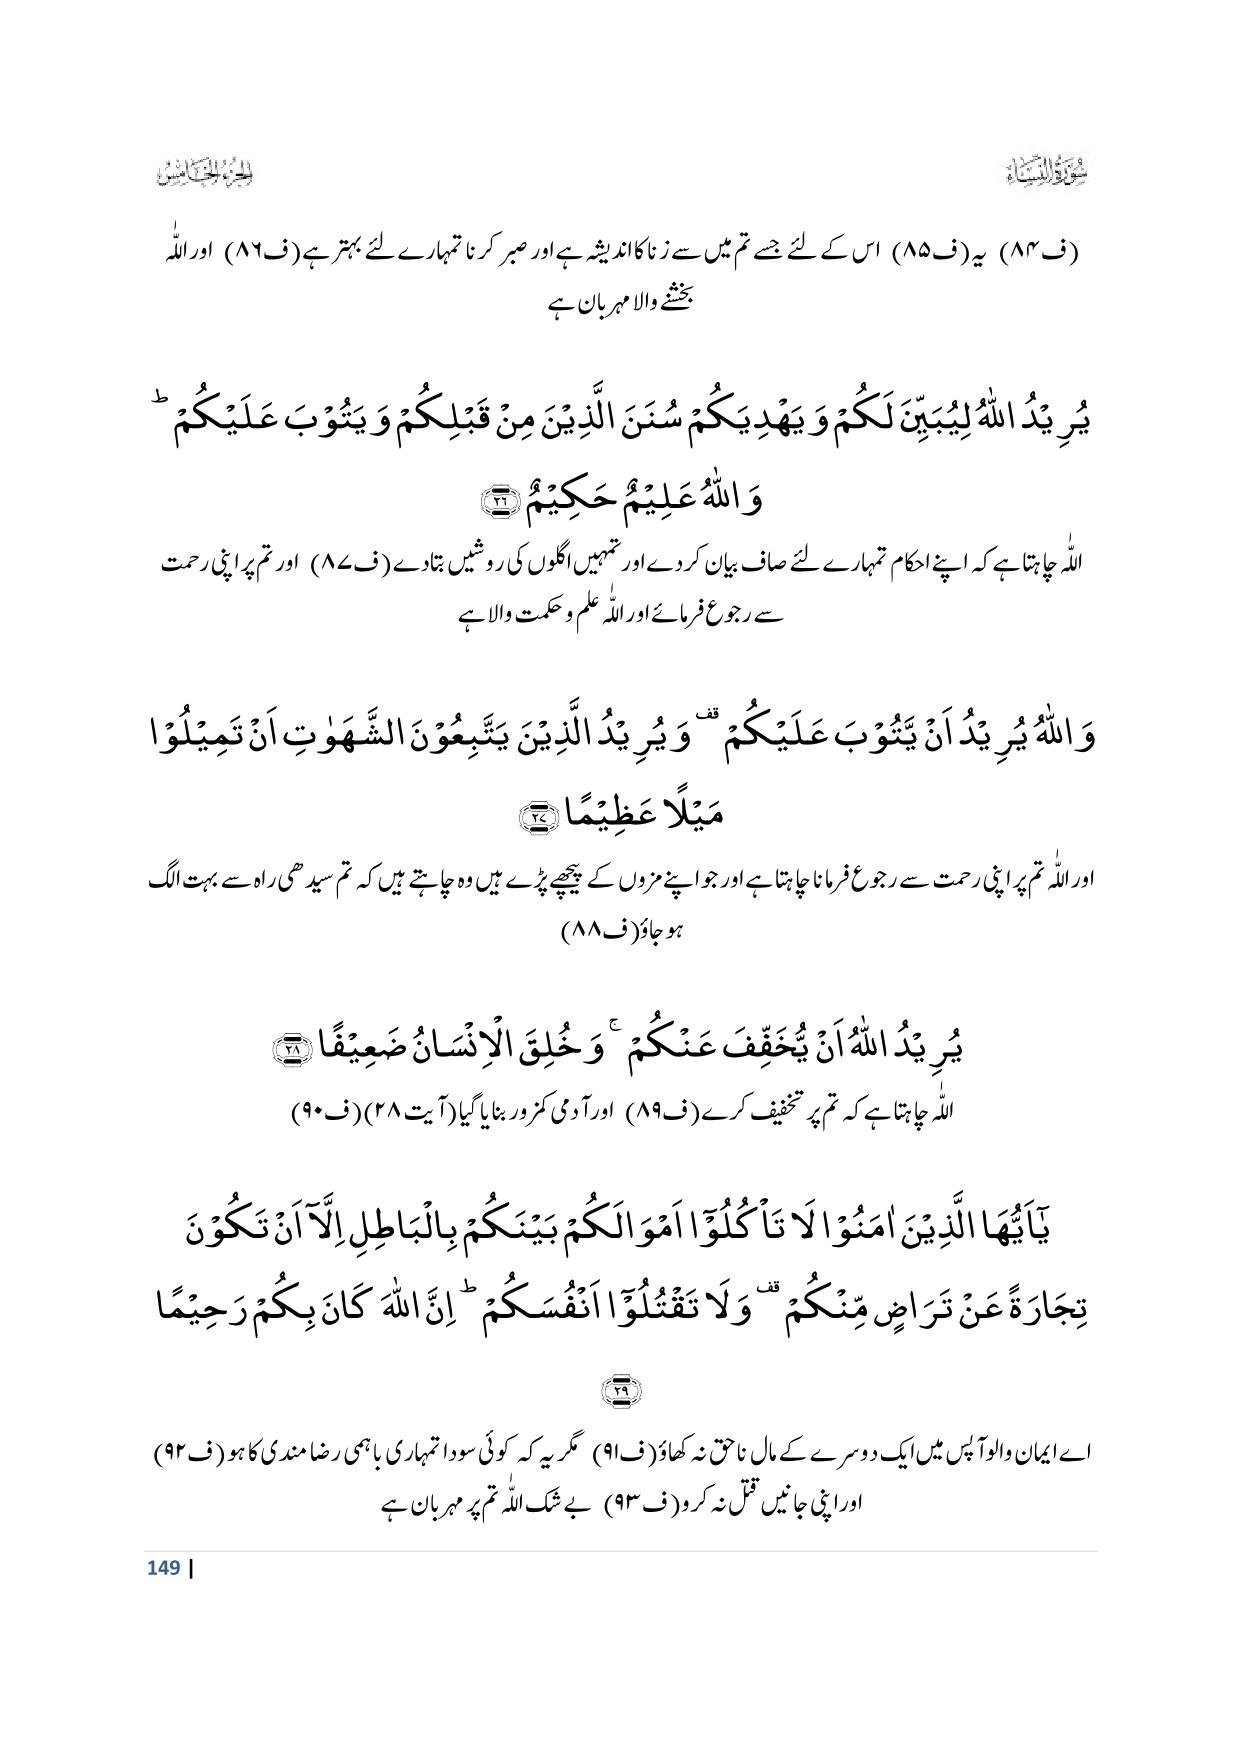 سُوْرَةُ النِّسَاء
الجزء الخامس
(ف۸۴) یہ(ف۸۵) اس کے لئے جسے تم میں سے زنا کا اندیشہ ہے اور صبر کرنا تمہارے لئے بہتر ہے(ف۸۶) اور اللّٰہ
بخشنے والا مہربان ہے
يُرِيْدُ اللّٰهُ لِيُبَيِّنَ لَكُمْ وَ يَهْدِيَكُمْ سُنَنَ الَّذِيْنَ مِنْ قَبْلِكُمْ وَ يَتُوْبَ عَلَيْكُمْ ؕ
وَ اللّٰهُ عَلِيْمٌ حَكِيْمٌ ﴿۲۶﴾
اللّٰہ چاہتا ہے کہ اپنے احکام تمہارے لئے صاف بیان کردے اور تمہیں اگلوں کی روشیں بتادے(ف۸۷) اور تم پر اپنی رحمت
سے رجوع فرمائے اور اللّٰہ علم و حکمت والا ہے
وَ اللّٰهُ يُرِيْدُ اَنْ يَّتُوْبَ عَلَيْكُمْ ۟ وَ يُرِيْدُ الَّذِيْنَ يَتَّبِعُوْنَ الشَّهَوٰتِ اَنْ تَمِيْلُوْا
مَيْلًا عَظِيْمًا ﴿۲۷﴾
اور اللّٰہ تم پر اپنی رحمت سے رجوع فرمانا چاہتا ہے اور جو اپنے مزوں کے پیچھے پڑے ہیں وہ چاہتے ہیں کہ تم سیدھی راہ سے بہت الگ
ہو جاؤ(ف۸۸)
يُرِيْدُ اللّٰهُ اَنْ يُّخَفِّفَ عَنْكُمْ ۚ وَ خُلِقَ الْاِنْسَانُ ضَعِيْفًا ﴿۲۸﴾
اللّٰہ چاہتا ہے کہ تم پر تخفیف کرے(ف۸۹) اور آدمی کمزور بنایا گیا(آیت ۲۸)(ف۹۰)
يٰۤاَيُّهَا الَّذِيْنَ اٰمَنُوْا لَا تَاْكُلُوْۤا اَمْوَالَكُمْ بَيْنَكُمْ بِالْبَاطِلِ اِلَّاۤ اَنْ تَكُوْنَ
تِجَارَةً عَنْ تَرَاضٍ مِّنْكُمْ ۟ وَ لَا تَقْتُلُوْۤا اَنْفُسَكُمْ ؕ اِنَّ اللّٰهَ كَانَ بِكُمْ رَحِيْمًا
﴿۲۹﴾
اے ایمان والو آپس میں ایک دوسرے کے مال ناحق نہ کھاؤ(ف۹۱) مگر یہ کہ کوئی سودا تمہاری باہمی رضامندی کا ہو (ف۹۲)
اور اپنی جانیں قتل نہ کرو(ف۹۳) بے شک اللّٰہ تم پر مہربان ہے
149 |